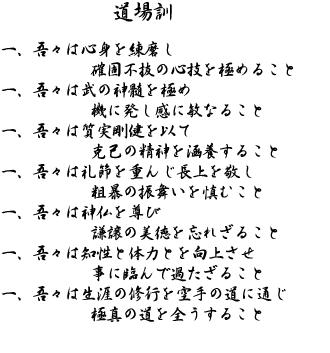 道場訓
一、吾々は心身を練磨し
確固不抜の心技を極めること
一、吾々は武の神髄を極め
機に発し感に敏なること
一、吾々は質実剛健を以て
克己の精神を涵養すること
一、吾々は礼節を重んじ長上を敬し
粗暴の振舞いを慎むこと
一、吾々は神仏を尊び
謙譲の美徳を忘れざること
一、吾々は知性と体力とを向上させ
事に臨んで過たざること
一、吾々は生涯の修行を空手の道に通じ
極真の道を全うすること